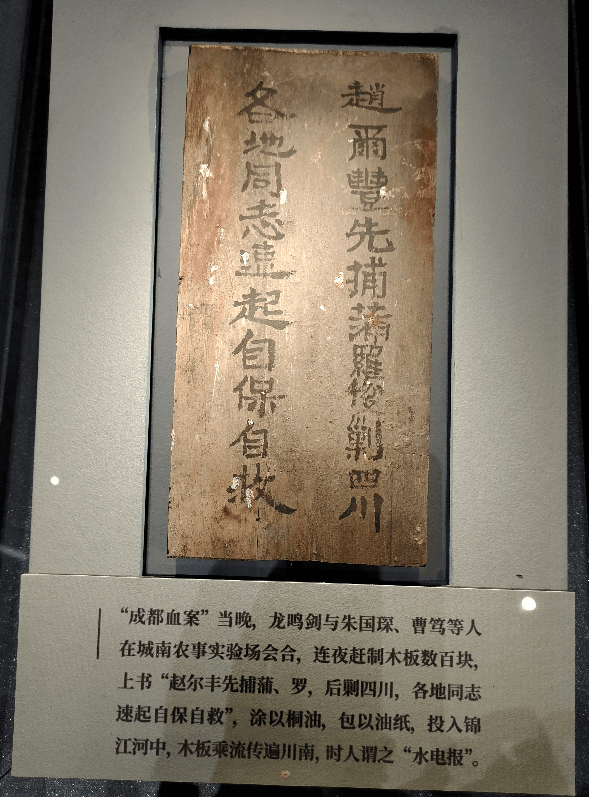 趙爾豐先捕蒲羅後剿四川
各地同志速起自保自救
“成都血案”当晚，龙鸣剑与朱国琛、曹笃等人
在城南农事实验场会合，连夜赶制木板数百块，
上书“赵尔丰先捕蒲、罗，后剿四川，各地同志
速起自保自救”，涂以桐油，包以油纸，投入锦
江河中，木板乘流传遍川南，时人谓之“水电报”。